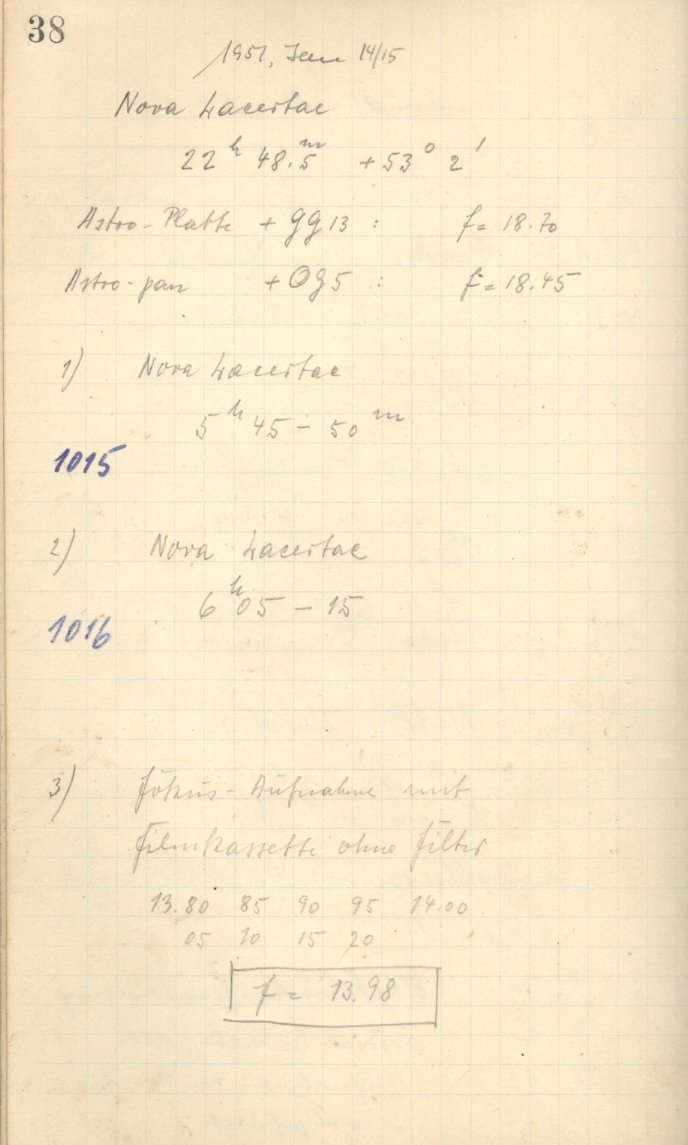 38
1951, Jan 14/15
Nova Lacertae
22ʰ 48.5ᵐ +53° 2'
Astro-Platte + GG13 : f = 18.70
Astro-pan + OG5 : f = 18.45
1) Nova Lacertae
5ʰ 45 – 50ᵐ
1015
2) Nova Lacertae
6ʰ 05 – 15
1016
3) Fokus-Aufnahme mit
Filmkassette ohne Filter
13.80 85 90 95 14.00
05 10 15 20
f = 13.98